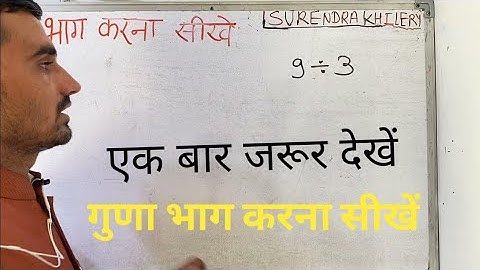 भाग करना सीखे
SURENDRA KHILERY
9 ÷ 3
एक बार जरूर देखें
गुणा भाग करना सीखें